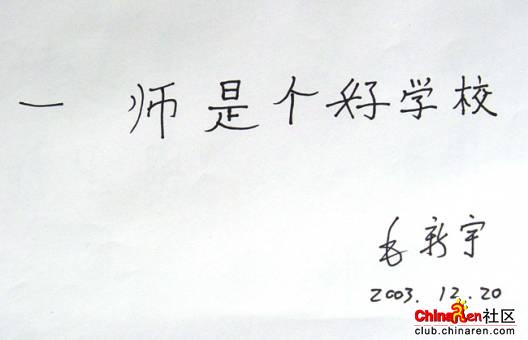 一 师是个好学校
毛新宇
2003.12.20
ChinaRen社区
club.chinaren.com